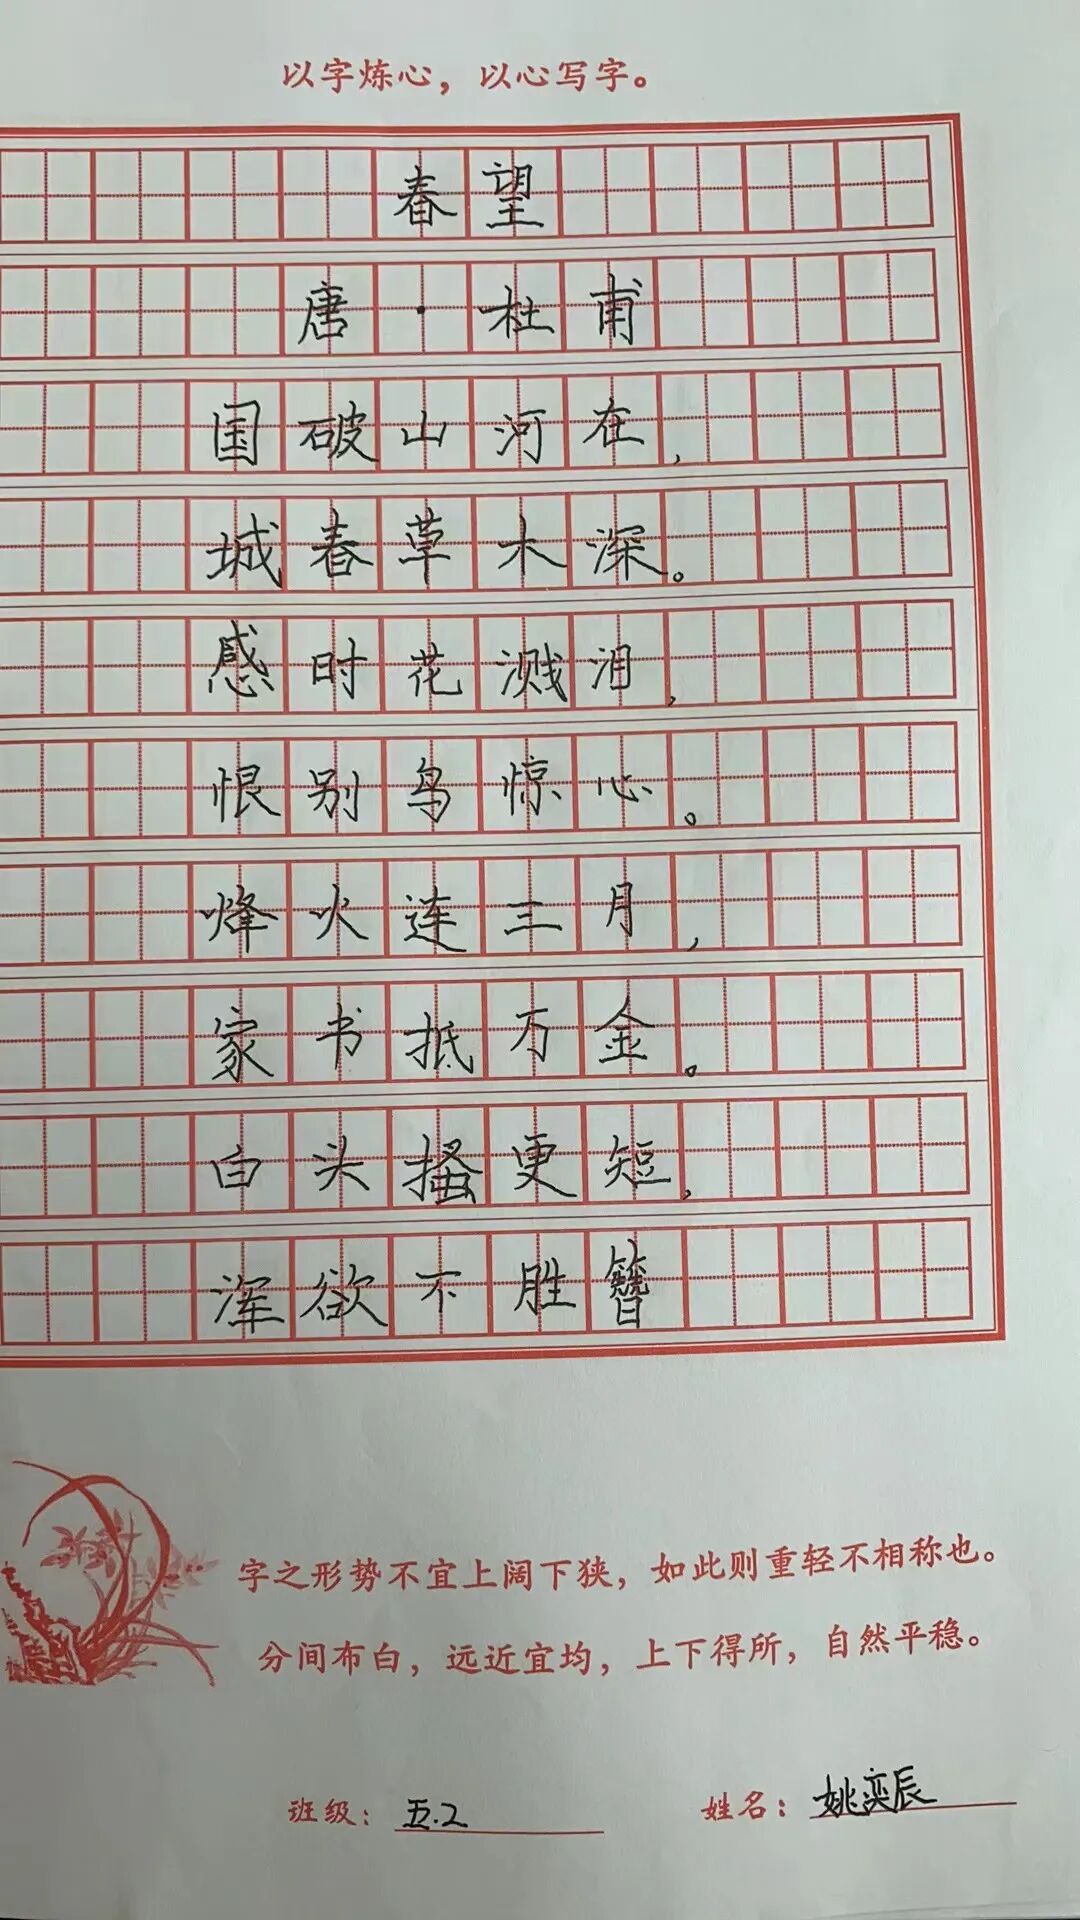 以字炼心，以心写字。
春望
唐·杜甫
国破山河在，
城春草木深。
感时花溅泪，
恨别鸟惊心。
烽火连三月，
家书抵万金。
白头搔更短，
浑欲不胜簪
字之形势不宜上阔下狭，如此则重轻不相称也。
分间布白，远近宜均，上下得所，自然平稳。
班级：五.2 姓名：姚奕辰